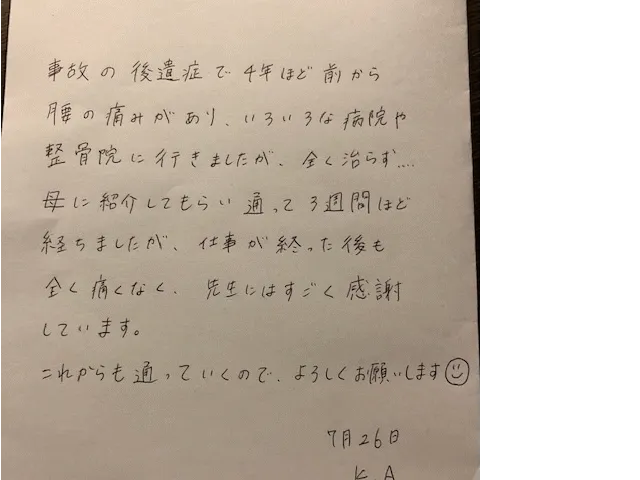 事故の後遺症で4年ほど前から
腰の痛みがあり、いろいろな病院や
整骨院に行きましたが、全く治らず....
母に紹介してもらい通って3週間ほど
経ちましたが、仕事が終った後も
全く痛くなく、先生にはすごく感謝
しています。
これからも通っていくので、よろしくお願いします☺
7月26日
K.A